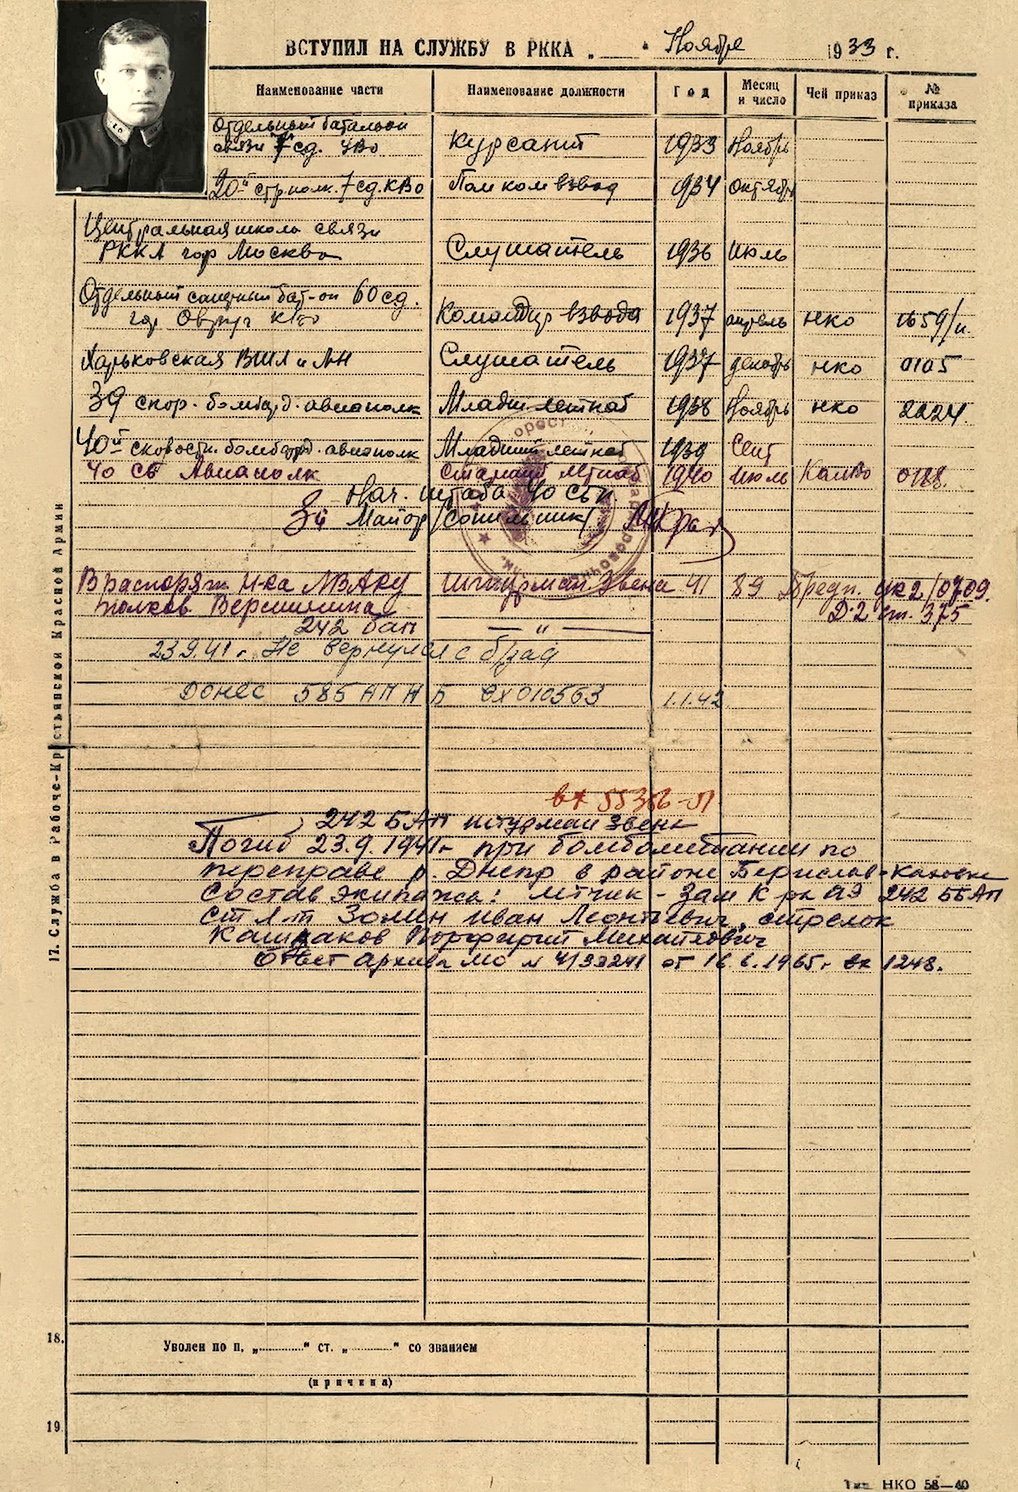 ВСТУПИЛ НА СЛУЖБУ В РККА „ “ Ноября 1933 г.
Наименование части Наименование должности Год Месяц и число Чей приказ № приказа
Отдельный батальон
связи 7 сд. УВО Курсант 1933 Ноябрь
20й стр полк. 7 сд. КВО Пом ком взвод 1934 октябрь
Центральная школа связи
РККА гор Москва Слушатель 1936 Июль
Отдельный саперный бат-он 60 сд.
гор Овруч КВО Командир взвода 1937 апрель НКО 1659/п.
Харьковская ВШЛ и ЛН Слушатель 1937 декабрь НКО 0105
39 скор. бомбард. авиаполк Младш летнаб 1938 Ноябрь НКО 2224.
40й скоростн. бомбард. авиаполк Младший летнаб 1939 Сент
40 сб Авиаполк Старший летнаб 1940 июль 0188.
Нач. штаба 40 сбп.
Майор
В распоряж. Н-ка
полков Вершинина Штурман звена 41 89 Предп. ук2/0709.
Д-2 ст. 375
242 бап — " —
23.9.41 г. Не вернулся с б/зад
Донес 585 АП Н Б вх 010563 1.1.42
вх 55356-П
242 БАП штурман звена
Погиб 23.9.1941г при бомбометании по
переправе р. Днепр в районе Берислав-Каховка
Состав экипажа: летчик - Зам К ра АЭ 242 ББАП
ст л-т Золин Иван Леонтьевич, стрелок
Кашпаков Порфирий Михайлович
Ответ архива МО № 4/93241 от 16.6.1965г вх 1248.
17. Служба в Рабоче-Крестьянской Красной Армии
18. Уволен по п. „ “ ст. „ “ со званием
(причина)
19.
Тип. НКО 58—40